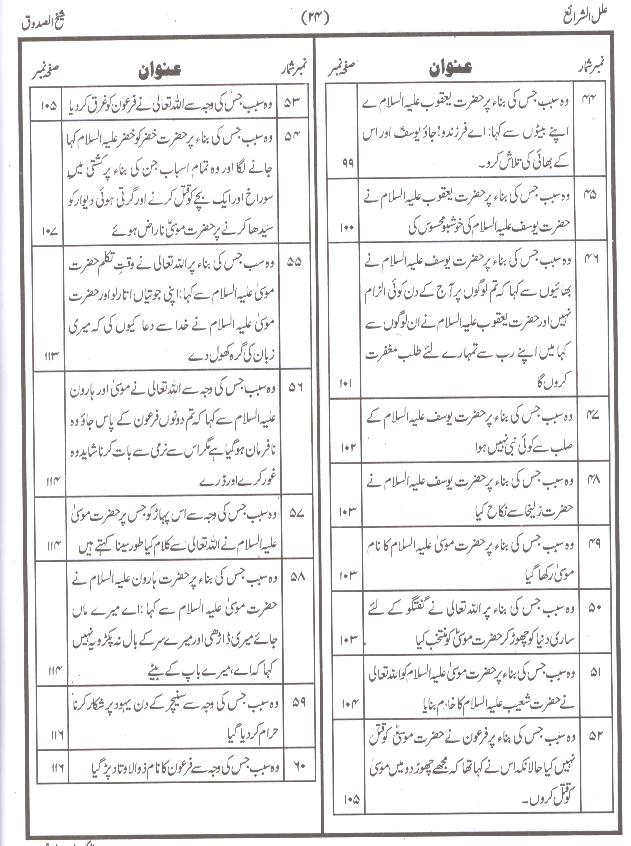 علل الشرائع (۲۴) شیخ الصدوق
نمبر شمار عنوان صفحہ نمبر
۴۴ وہ سبب جس کی بناء پر حضرت یعقوب علیہ السلام ے
اپنے بیٹوں سے کہا: اے فرزندو! جاؤ یوسفؑ اور اس
کے بھائی کی تلاش کرو۔ ۹۹
۴۵ وہ سبب جس کی بناء پر حضرت یعقوب علیہ السلام نے
حضرت یوسف علیہ السلام کی خوشبو محسوس کی ۱۰۰
۴۶ وہ سبب جس کی بناء پر حضرت یوسف علیہ السلام نے
بھائیوں سے کہا کہ تم لوگوں پر آج کے دن کوئی الزام
نہیں اور حضرت یعقوب علیہ السلام نے ان لوگوں سے
کہا میں اپنے رب سے تمہارے لئے طلب مغفرت
کروں گا ۱۰۱
۴۷ وہ سبب جس کی بناء پر حضرت یوسف علیہ السلام کے
صلب سے کوئی نبی نہیں ہوا ۱۰۲
۴۸ وہ سبب جس کی بناء پر حضرت یوسف علیہ السلام نے
حضرت زلیخا سے نکاح کیا ۱۰۳
۴۹ وہ سبب جس کی بناء پر حضرت موسیٰ علیہ السلام کا نام
موسیٰ رکھا گیا ۱۰۳
۵۰ وہ سبب جس کی بناء پر اللہ تعالی نے گفتگو کے لئے
ساری دنیا کو چھوڑ کر حضرت موسیٰؑ کو منتخب کیا ۱۰۳
۵۱ وہ سبب جس کی بناء پر حضرت موسیٰ علیہ السلام کو اللہ تعالی
نے حضرت شعیب علیہ السلام کا خادم بنایا ۱۰۴
۵۲ وہ سبب جس کی بناء پر فرعون نے حضرت موسیٰؑ کو قتل
نہیں کیا حالانکہ اس نے کہا تھا کہ مجھے چھوڑ دو میں موسیٰ
کو قتل کروں۔ ۱۰۵
نمبر شمار عنوان صفحہ نمبر
۵۳ وہ سبب جس کی وجہ سے اللہ تعالی نے فرعون کو غرق کر دیا ۱۰۵
۵۴ وہ سبب جس کی بناء پر حضرت خضر کو خضر علیہ السلام کہا
جانے لگا اور وہ تمام اسباب جن کی بناء پر کشتی میں
سوراخ اور ایک بچے کو قتل کرنے اور گرتی ہوئی دیوار کو
سیدھا کرنے پر حضرت موسیٰؑ ناراض ہوئے ۱۰۷
۵۵ وہ سب جس کی بناء پر اللہ تعالی نے وقتِ تکلم حضرت
موسیٰ علیہ السلام سے کہا: اپنی جوتیاں اتار لو اور حضرت
موسیٰ علیہ السلام نے خدا سے دعا کیوں کی کہ میری
زبان کی گرہ کھول دے ۱۱۳
۵۶ وہ سبب جس کی وجہ سے اللہ تعالی نے موسیٰ اور ہارون
علیہ السلام سے کہا کہ تم دونوں فرعون کے پاس جاؤ وہ
نافرمان ہو گیا ہے مگر اس سے نرمی سے بات کرنا شاید وہ
غور کرے اور ڈرے ۱۱۴
۵۷ وہ سبب جس کی وجہ سے اس پہاڑ کو جس پر حضرت موسیٰ
علیہ السلام نے اللہ تعالی سے کلام کیا طور سینا کہتے ہیں ۱۱۴
۵۸ وہ سبب جس کی بناء پر حضرت ہارون علیہ السلام نے
حضرت موسیٰ علیہ السلام سے کہا: اے میرے ماں
جائے میری ڈاڑھی اور میرے سر کے بال نہ پکڑو یہ نہیں
کہا کہ اے، میرے باپ کے بیٹے ۱۱۴
۵۹ وہ سبب جس کی وجہ سے سنیچر کے دن یہود پر شکار کرنا
حرام کر دیا گیا ۱۱۶
۶۰ وہ سبب جس کی وجہ سے فرعون کا نام ذوالاوتاد پڑ گیا ۱۱۶